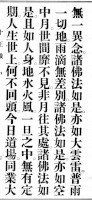 無一異念諸佛法如是亦如大雲雷普雨
一切地雨滴無差別諸佛法如是亦如空
中月世間靡不見非月往其處諸佛法如
是且如人身地水火風一旦之中無有定
期人生世上何不回頭今日道場同業大